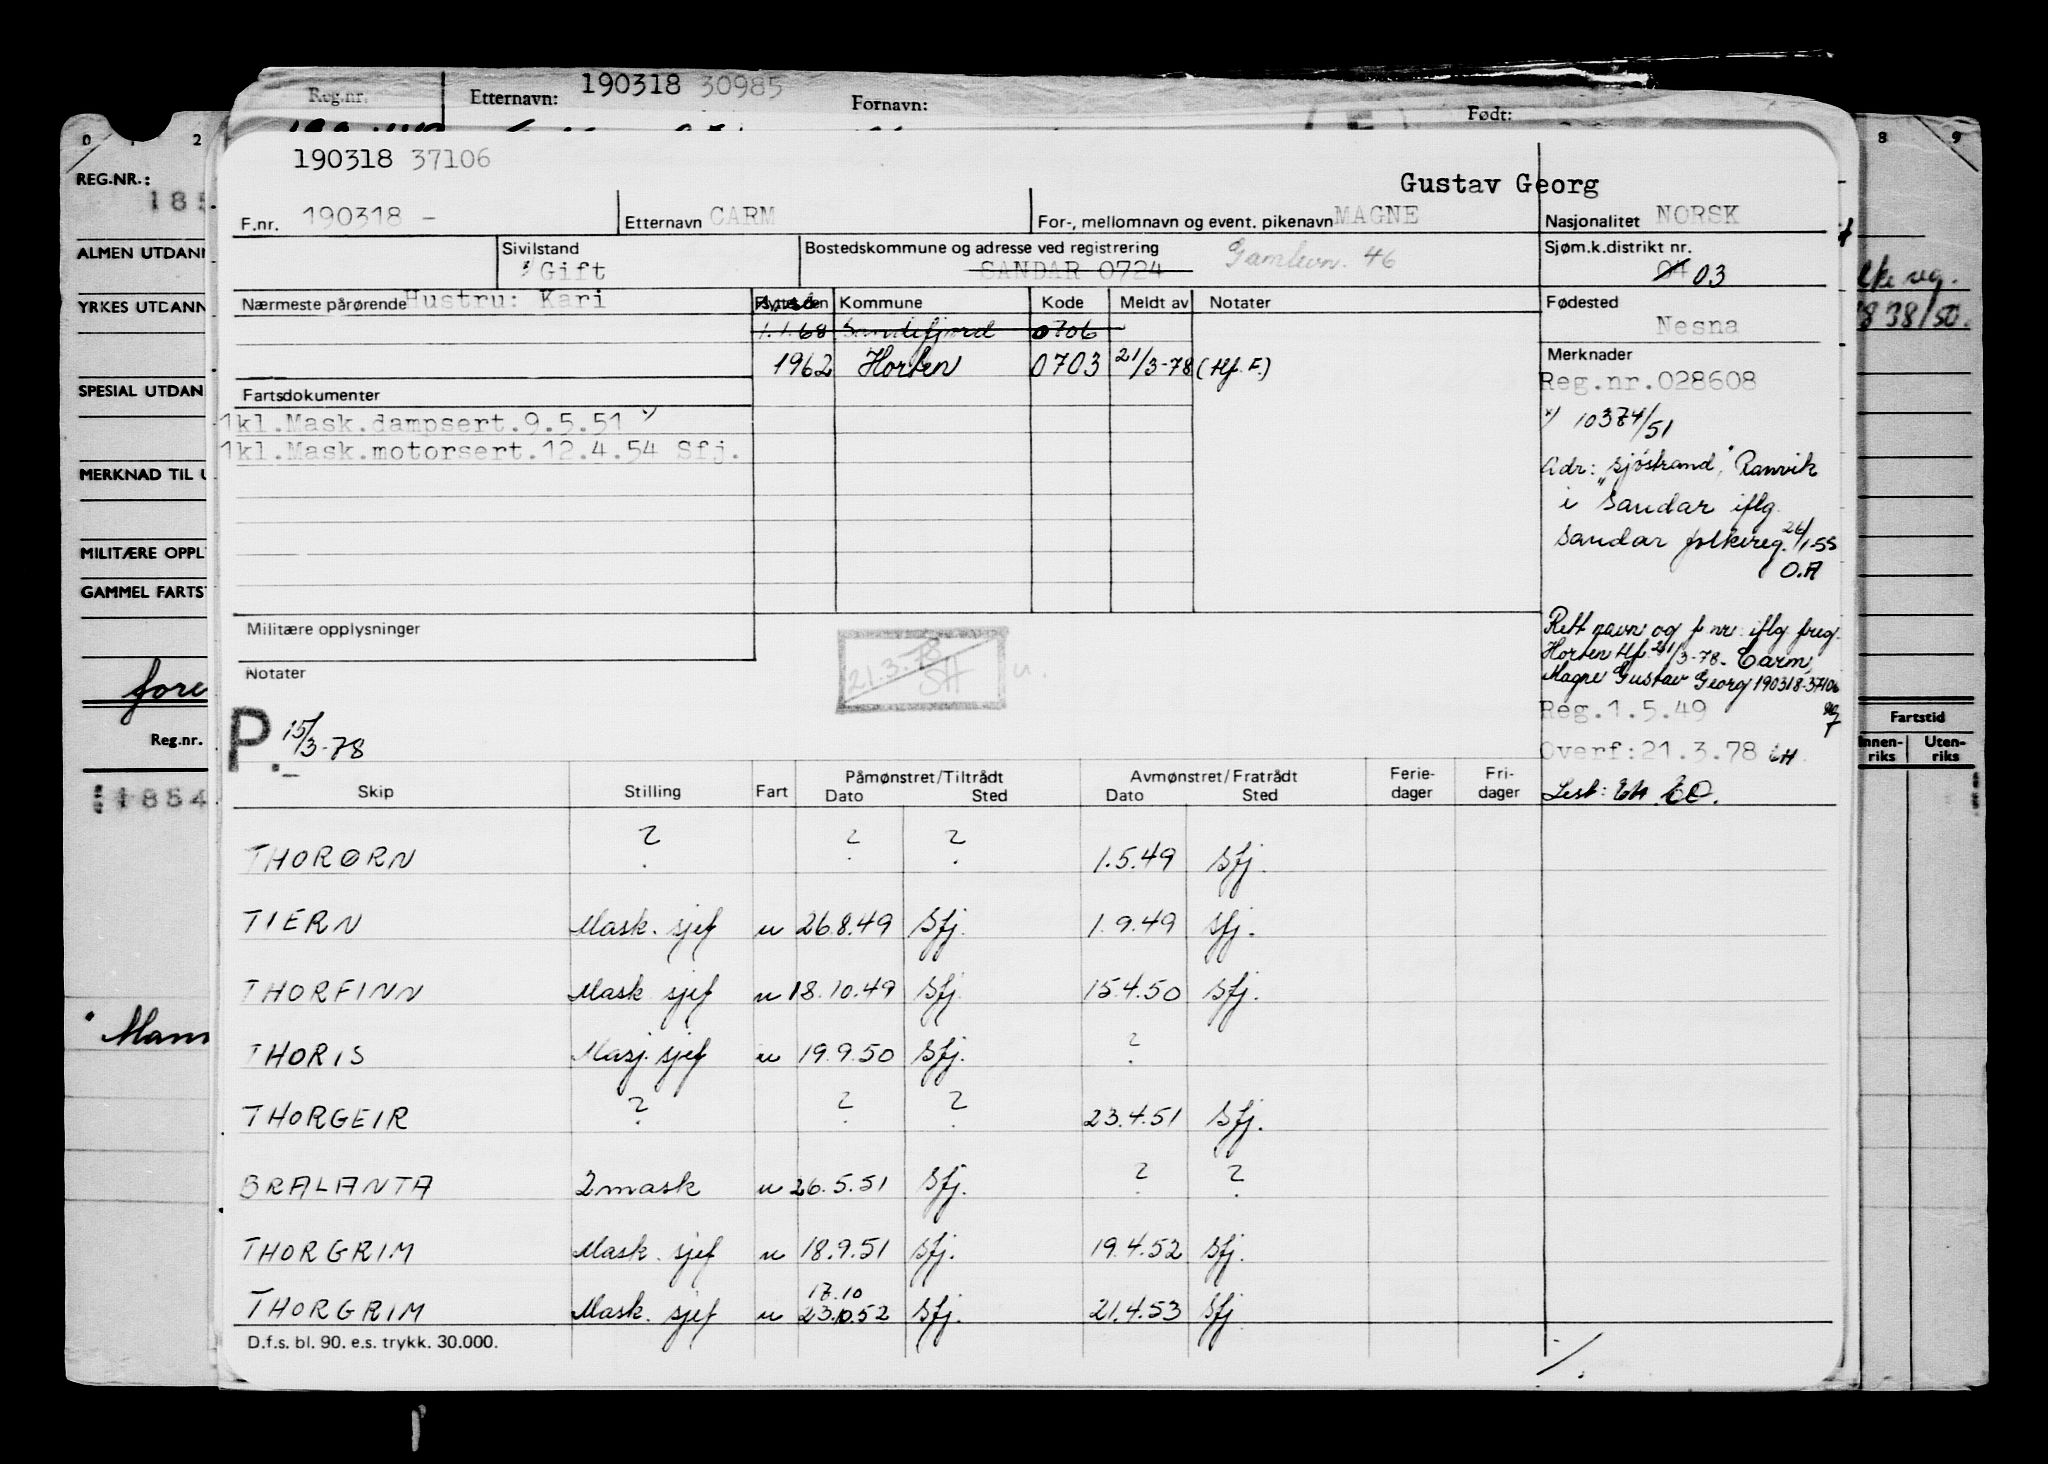 Reg.nr.
Etternavn: 190318 30985
Fornavn:
Født:
0 1 2
8 9
REG.NR.:
185
ALMEN UTDANN
YRKES UTDANN
SPESIAL UTDAN
MERKNAD TIL U
MILITÆRE OPPL
GAMMEL FARTST
fore
Reg.nr.
1854
Mann
190318 37106
Gustav Georg
F.nr. 190318 -
Etternavn CARM
For-, mellomnavn og event. pikenavn MAGNE
Nasjonalitet NORSK
Sivilstand
x) Gift
Bostedskommune og adresse ved registrering
SANDAR 0724 Gamlevn. 46
Sjøm.k.distrikt nr.
04 03
Nærmeste pårørende Hustru: Kari
Kommune Kode Meldt av Notater
1.1.68 Sandefjord 0706
1962 Horten 0703 21/3-78 (Hf. F.)
Fødested
Nesna
Merknader
Reg.nr.028608
x) 10374/51
Adr: "Sjöstrand", Ranvik
i Sandar iflg.
Sandar folkereg. 26/1-55
O.A
Rett navn og f nr. iflg freg.
Horten Hf. 21/3-78. Carm,
Magne Gustav Georg 190318-37106
Reg.1.5.49
Overf:21.3.78 EH
Lest: EH. EO.
Fartsdokumenter
1kl.Mask.dampsert.9.5.51 x)
1kl.Mask.motorsert.12.4.54 Sfj.
Militære opplysninger
21.3.78
SH
u.
Notater
P. 15/3-78
38/50.
Fartstid
Innen-riks Uten-riks
Skip Stilling Fart Påmønstret/Tiltrådt Dato Sted Avmønstret/Fratrådt Dato Sted Ferie-dager Fri-dager
THORØRN ? ? ? 1.5.49 Sfj.
TIERN Mask. sjef u 26.8.49 Sfj. 1.9.49 Sfj.
THORFINN Mask sjef u 18.10.49 Sfj 15.4.50 Sfj.
THORIS Masj. sjef u 19.9.50 Sfj. ?
THORGEIR ? ? ? 23.4.51 Sfj.
BRALANTA 2 mask u 26.5.51 Sfj. ? ?
THORGRIM Mask. sjef u 18.9.51 Sfj. 19.4.52 Sfj.
17.10
THORGRIM Mask. sjef u 23.10.52 Sfj. 21.4.53 Sfj
D.f.s. bl. 90. e.s. trykk. 30.000.